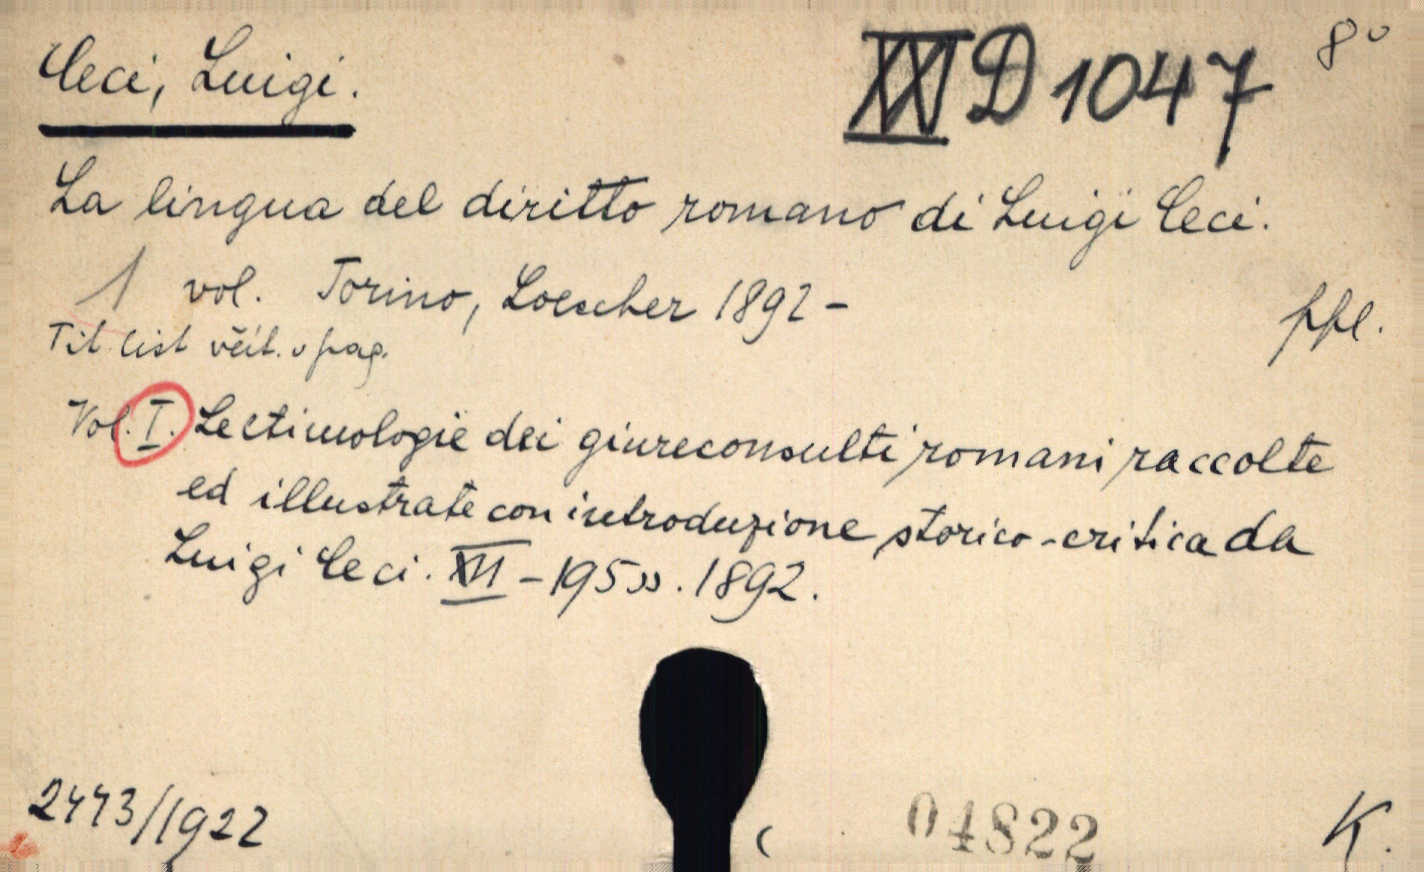 Ceci, Luigi.
XXI D 1047
8°
La lingua del diritto romano di Luigi Ceci.
1 vol. Torino, Loescher 1892 -
ppl.
Tit. list včít. v pag.
Vol. I. Le etimologie dei giureconsulti romani raccolte
ed illustrate con introduzione storico-critica da
Luigi Ceci. XII - 195 ss. 1892.
2473/1922
04822
K.